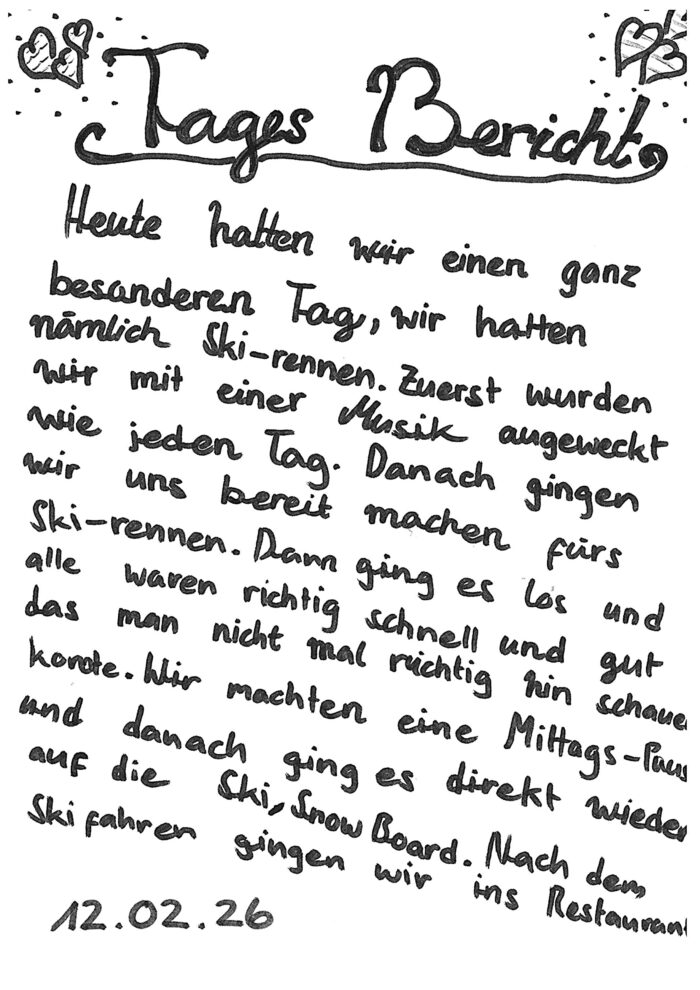 Tages Bericht
Heute hatten wir einen ganz
besonderen Tag, wir hatten
nämlich Ski-rennen. Zuerst wurden
wir mit einer Musik augeweckt
wie jeden Tag. Danach gingen
wir uns bereit machen fürs
Ski-rennen. Dann ging es los und
alle waren richtig schnell und gut
das man nicht mal richtig hin schauen
konnte. Wir machten eine Mittags-Paus
und danach ging es direkt wieder
auf die Ski, Snow Board. Nach dem
Ski fahren gingen wir ins Restaurant
12.02.26